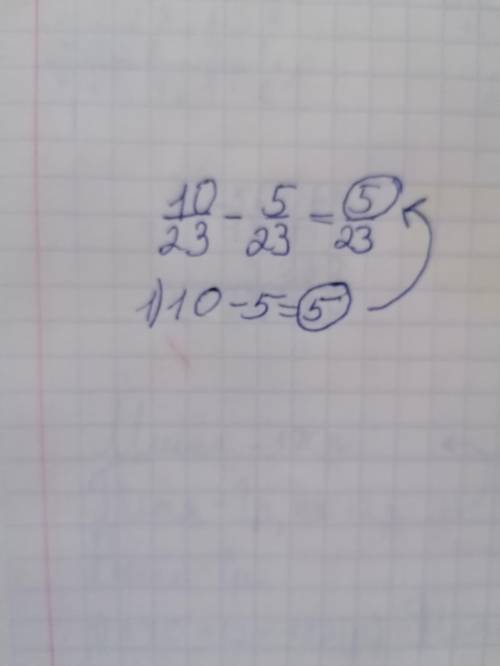 10/23 - 5/23 = 5/23
1) 10 - 5 = 5